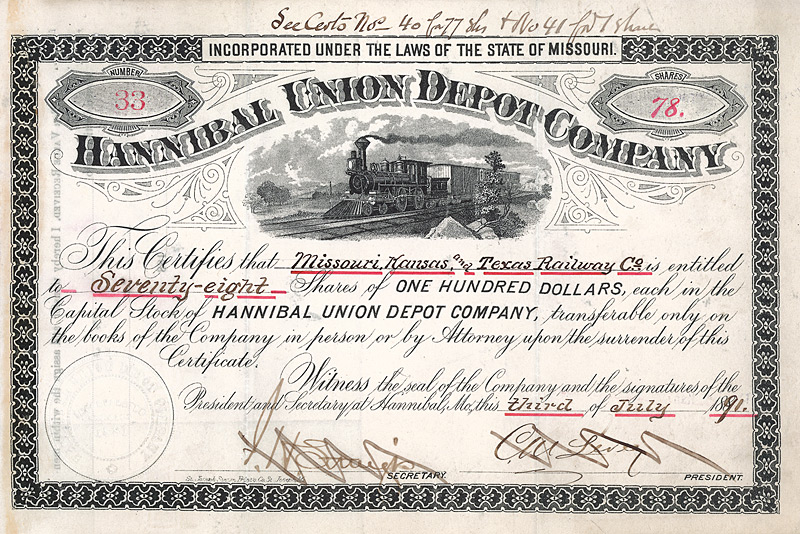 See Certs Nos 40 for 77 shs & No 41 for 1 share
INCORPORATED UNDER THE LAWS OF THE STATE OF MISSOURI.
NUMBER
33
SHARES
78.
HANNIBAL UNION DEPOT COMPANY
This Certifies that Missouri, Kansas, and Texas Railway Co. is entitled
to Seventy-eight Shares of ONE HUNDRED DOLLARS, each in the
Capital Stock of HANNIBAL UNION DEPOT COMPANY, transferable only on
the books of the Company in person or by Attorney upon the surrender of this
Certificate.
Witness the seal of the Company and the signatures of the
President and Secretary at Hannibal, Mo, this third of July 1891.
SECRETARY.
PRESIDENT.